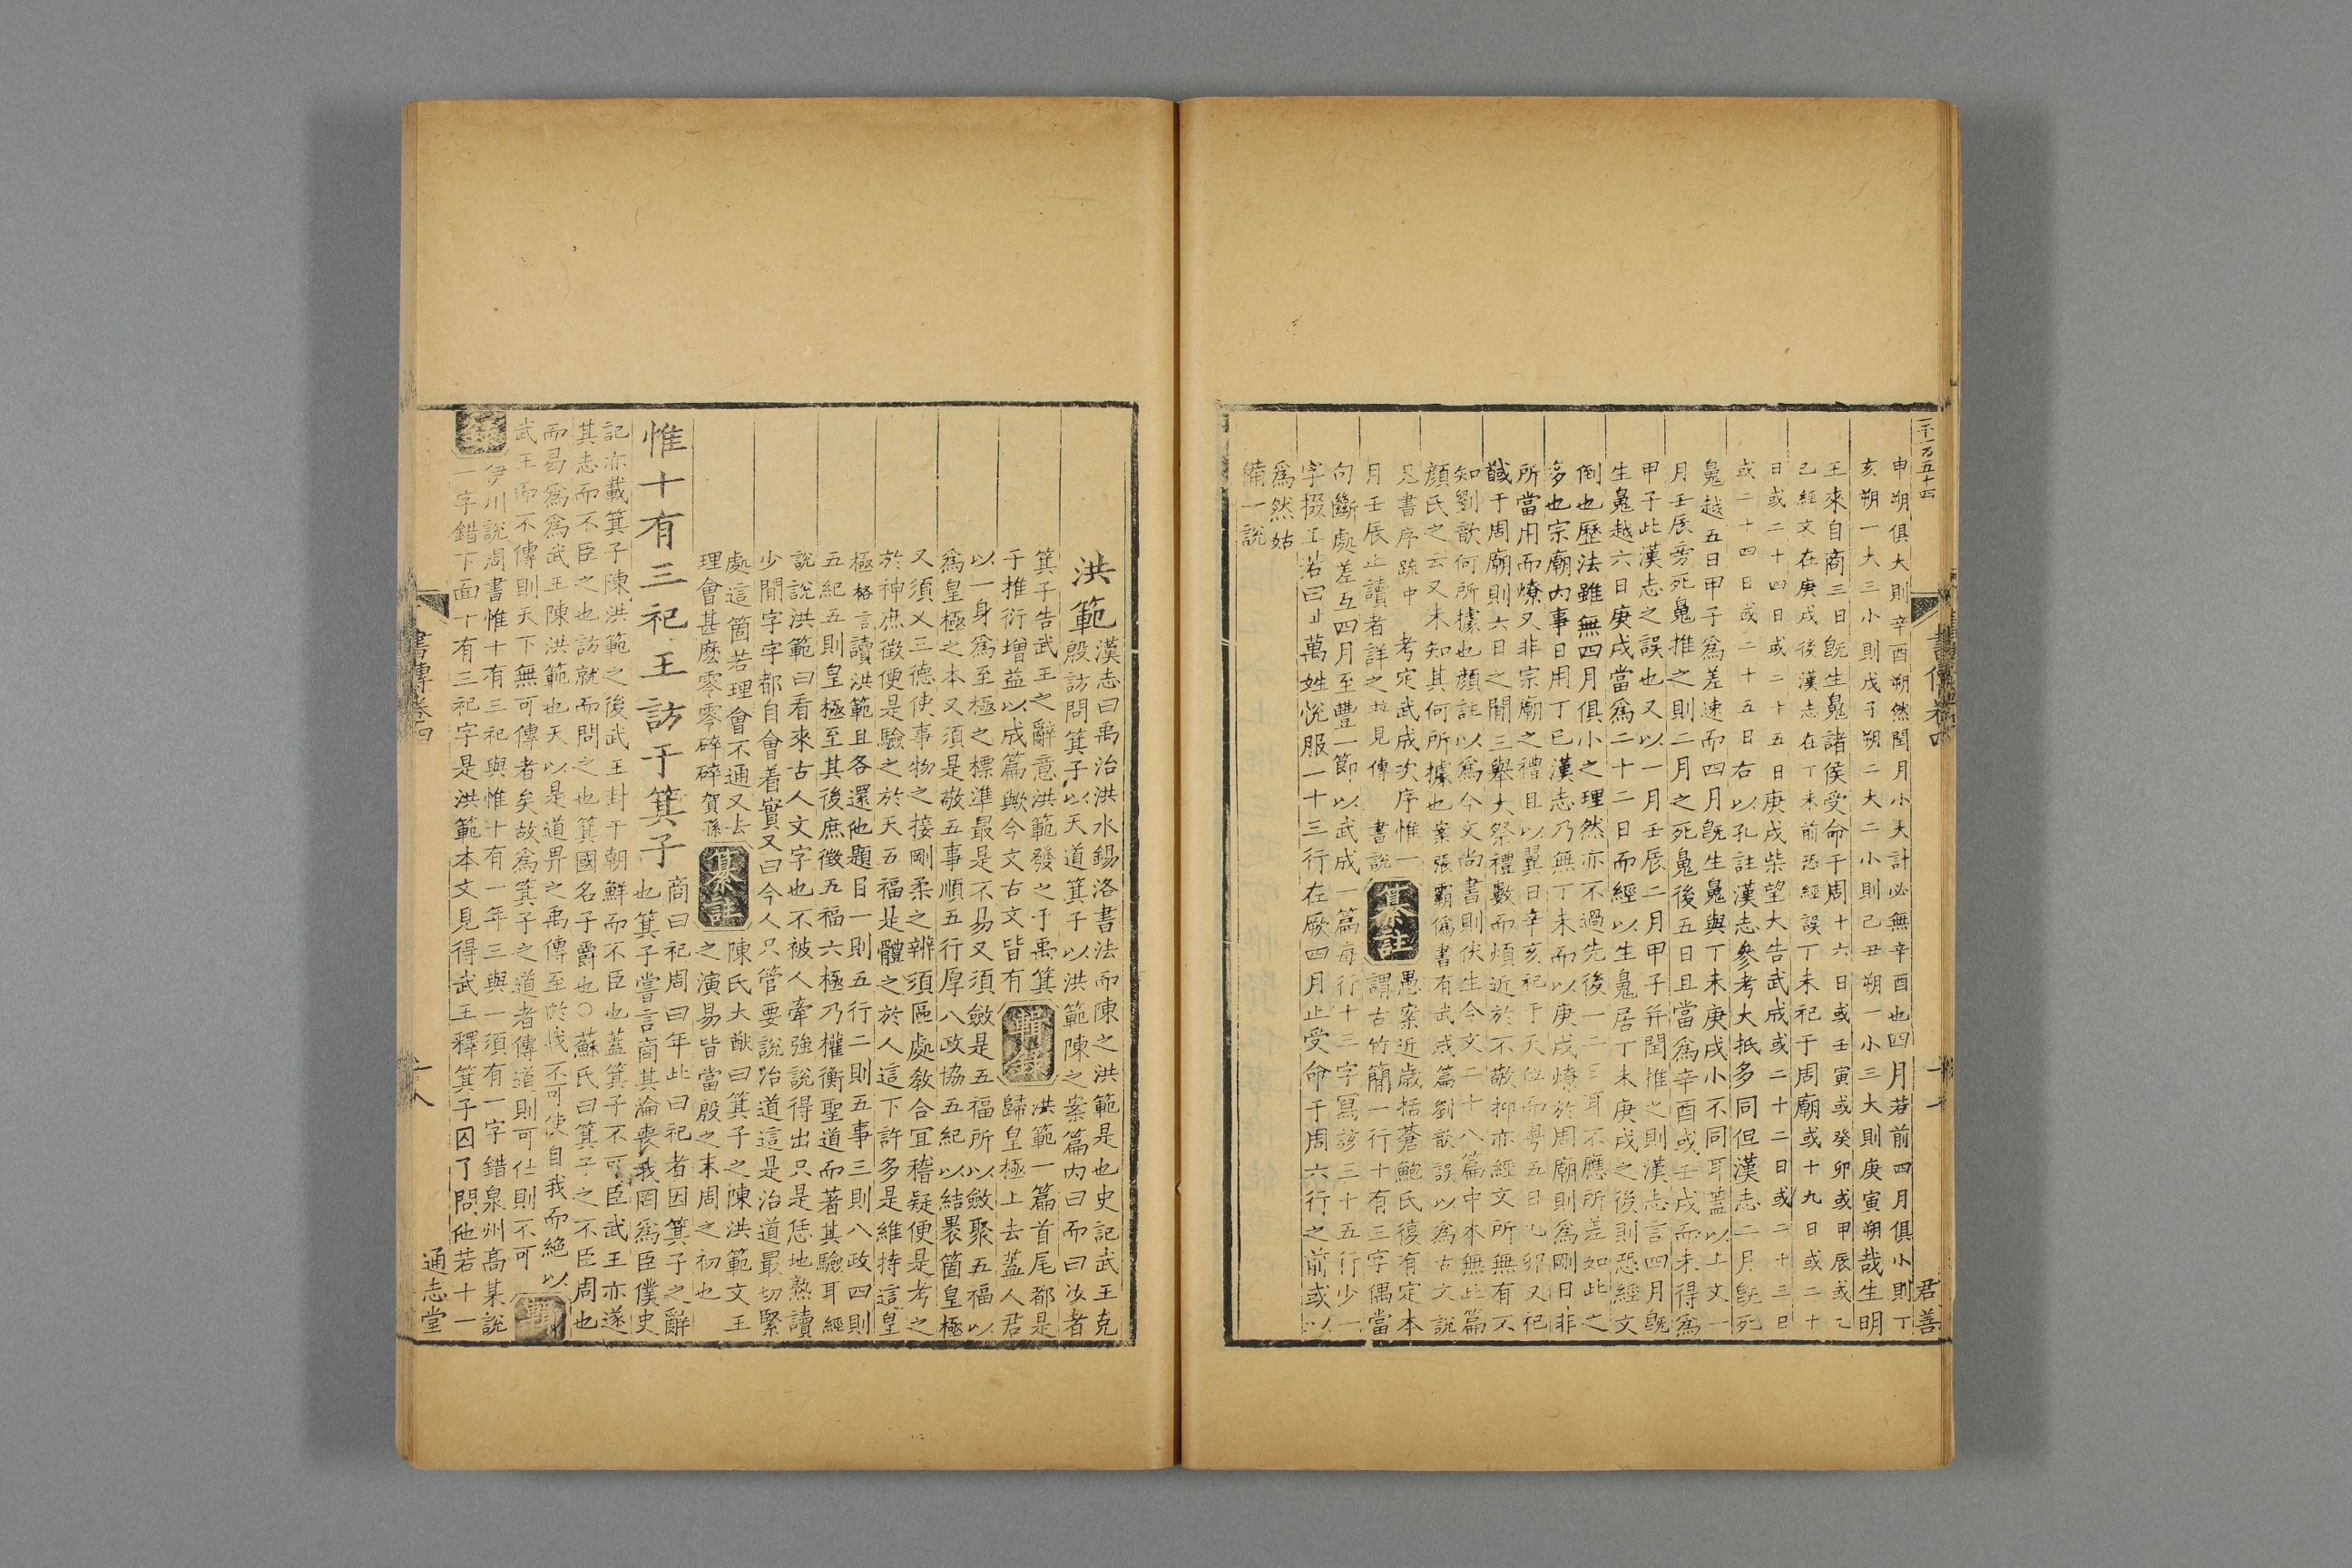 申朔俱大則辛酉朔然閏月小大計必無辛酉也四月若前四月俱小則丁
亥朔一大三小則戊子朔二大二小則己丑朔一小三大則庚寅朔哉生明
王來自商三日旣生魄諸侯受命于周十六日或壬寅或癸卯或甲辰或乙
巳經文在庚戌後漢志在丁未前恐經誤丁未祀于周廟或十九日或二十
日或二十四日或二十五日庚戌柴望大告武成或二十二日或二十三日
或二十四日或二十五日右以孔註漢志參考大抵多同但漢志二月旣死
魄越五日甲子爲差速而四月旣生魄與丁未庚戌小不同耳蓋以上文一
月壬辰旁死魄推之則二月之死魄後五日且當爲辛酉或壬戌而未得爲
甲子此漢志之誤也又以一月壬辰二月甲子幷閏推之則漢志言四月旣
生魄越六日庚戌當爲二十二日而經以生魄居丁未庚戌之後則恐經文
倒也歷法雖無四月俱小之理然亦不過先後一二日耳不應所差如此之
多也宗廟內事日用丁巳漢志乃無丁未而以庚戌燎於周廟則爲剛日非
所當用而燎又非宗廟之禮且以翼日辛亥祀于天位而粵五日乙卯又祀
馘于周廟則六日之閒三舉大祭禮數而煩近於不敬抑亦經文所無有不
知劉歆何所據也顏註以爲今文尚書則伏生今文二十八篇中本無此篇
顏氏之云又未知其何所據也案張霸僞書有武成篇劉歆誤以爲古文說
見書序疏中 考定武成次序惟一
月壬辰止讀者詳之竝見傳 書說
纂註
愚案近歲括蒼鮑氏復有定本
謂古竹簡一行十有三字偶當
句斷處差互四月至豐一節以武成一篇每行十三字寫該三十五行少一
字掇王若曰止萬姓悅服一十三行在厥四月止受命于周六行之前或以
爲然姑
備一說
君善
洪範
漢志曰禹治洪水錫洛書法而陳之洪範是也史記武王克
殷訪問箕子以天道箕子以洪範陳之案篇內曰而曰汝者
箕子告武王之辭意洪範發之于禹箕
子推衍增益以成篇歟今文古文皆有
輯錄
洪範一篇首尾都是
歸皇極上去蓋人君
以一身爲至極之標準最是不易又須斂是五福所以斂聚五福以
爲皇極之本又須是敬五事順五行厚八政協五紀以結褁箇皇極
又須乂三德使事物之接剛柔之辨須區處敎合宜稽疑便是考之
於神庶徵便是驗之於天五福是體之於人這下許多是維持這皇
極格言讀洪範且各還他題目一則五行二則五事三則八政四則
五紀五則皇極至其後庶徵五福六極乃權衡聖道而著其驗耳經
說說洪範曰看來古人文字也不被人牽強說得出只是恁地熟讀
少閒字字都自會着實又曰今人只管要說治道這是治道最切緊
處這箇若理會不通又去
理會甚麽零零碎碎賀孫
纂註
陳氏大猷曰箕子之陳洪範文王
之演易皆當殷之末周之初也
惟十有三祀王訪于箕子
商曰祀周曰年此曰祀者因箕子之辭
也箕子嘗言商其淪喪我罔爲臣僕史
記亦載箕子陳洪範之後武王封于朝鮮而不臣也蓋箕子不可臣武王亦遂
其志而不臣之也訪就而問之也箕國名子爵也○蘇氏曰箕子之不臣周也
而曷爲爲武王陳洪範也天以是道畀之禹傳至於我不可使自我而絕以
武王而不傳則天下無可傳者矣故爲箕子之道者傳道則可仕則不可
輯錄
伊川說周書惟十有三祀與惟十有一年三與一須有一字錯泉州高某說
一字錯下面十有三祀字是洪範本文見得武王釋箕子囚了問他若十一
書傳卷四
十八
通志堂